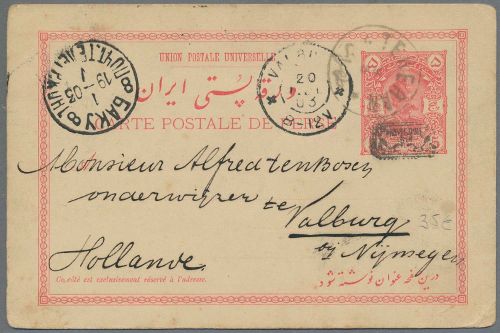 UNION POSTALE UNIVERSELLE
ورقهٔ پستی ایران
CARTE POSTALE DE PERSE
БАКУ
ПОЧТ. ТЕЛЕГР.
19 1 03
1
20
03
8-12V
TEHERAN
Monsieur Alfred ten Bosch
onderwijzer te
Valburg
bij Nijmegen
Hollande
35€
Ce côté est exclusivement réservé à l'adresse.
درین صفحه عنوان نوشته شود